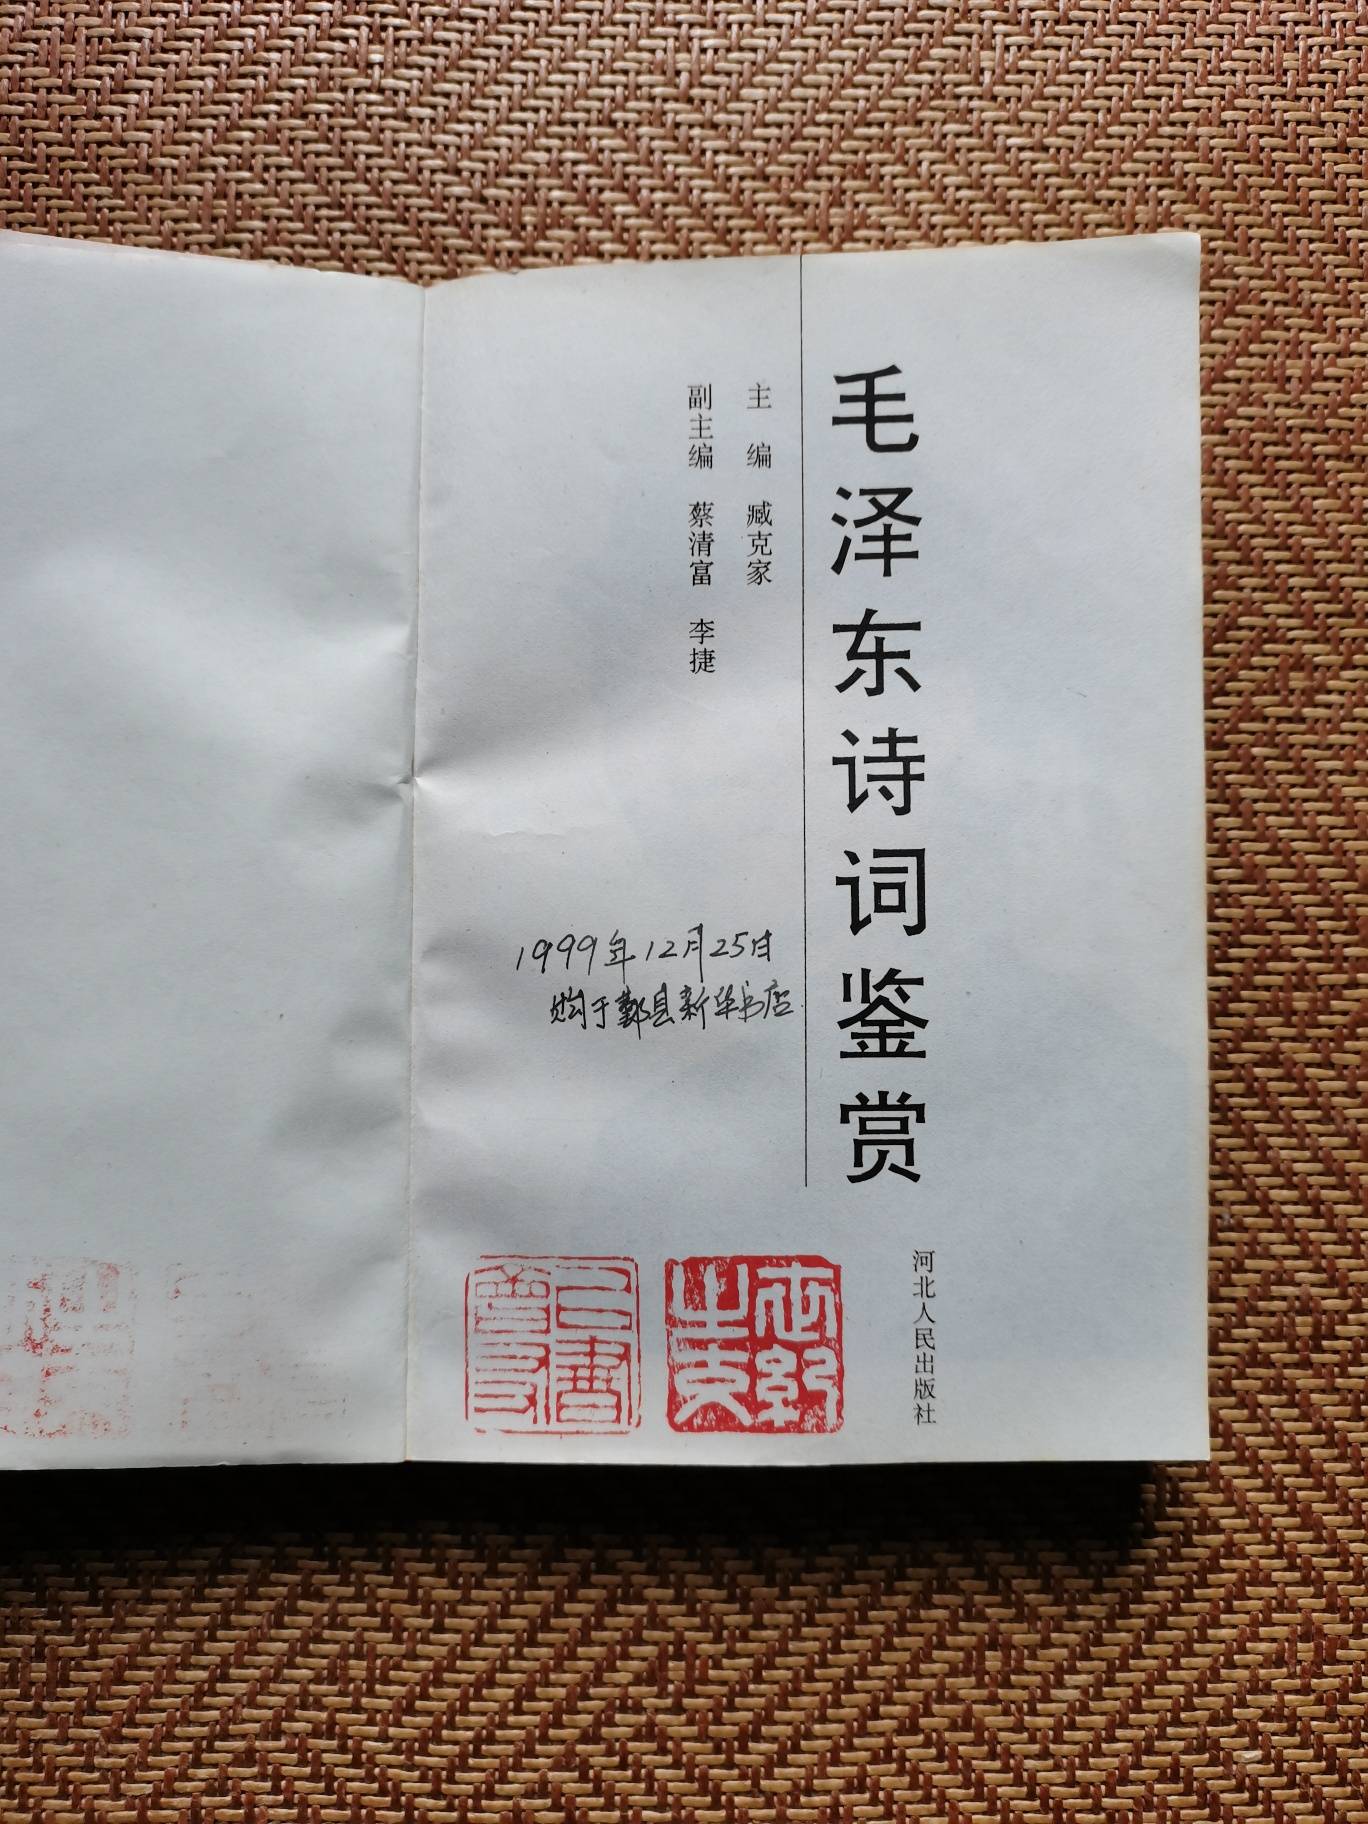 毛泽东诗词鉴赏
主 编 臧克家
副主编 蔡清富 李捷
1999年12月25日
购于鄞县新华书店
河北人民出版社